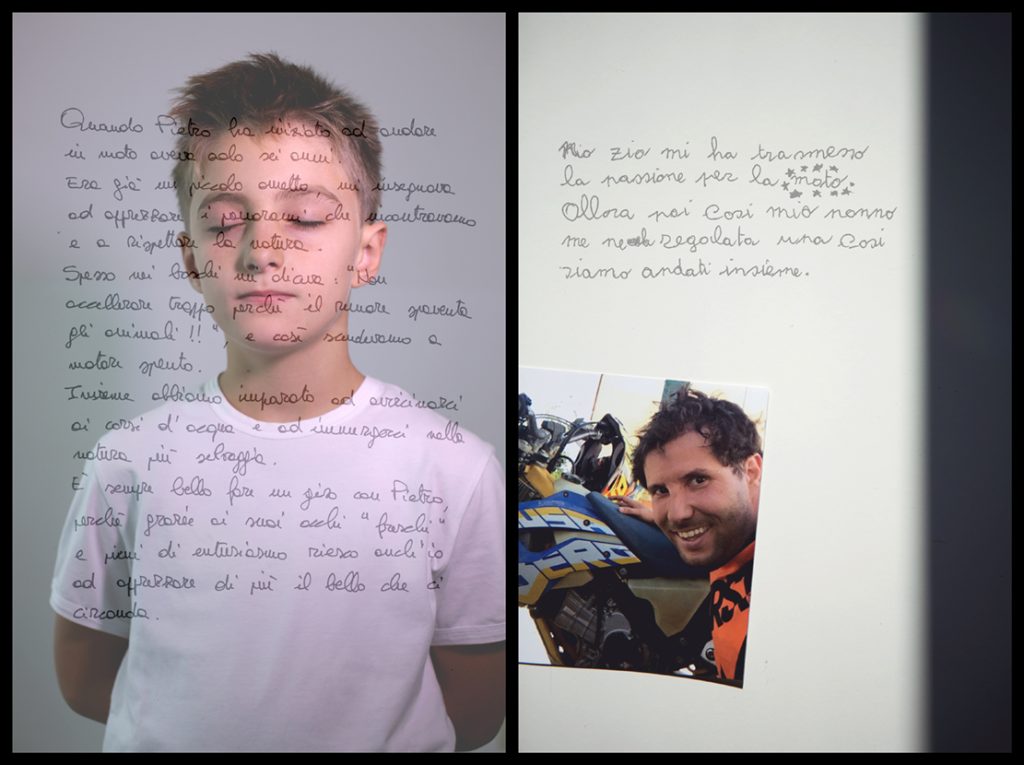 Quando Pietro ha iniziato ad andare
in moto aveva solo sei anni.
Era già un piccolo ometto, mi insegnava
ad apprezzare i panorami che incontravamo
e a rispettare la natura.
Spesso nei boschi mi diceva: "Non
accellerare troppo perché il rumore spaventa
gli animali!!", e così scendevamo a
motore spento.
Insieme abbiamo imparato ad avvicinarci
ai corsi d'acqua e ad immergerci nella
natura più selvaggia.
È sempre bello fare un giro con Pietro,
perché grazie ai suoi occhi "freschi"
e pieni di entusiasmo riesco anch'io
ad apprezzare di più il bello che ci
circonda.
Mio zio mi ha trasmesso
la passione per la moto.
Ollora poi Cosi mio nonno
me regolata una Cosi
siamo andati insieme.